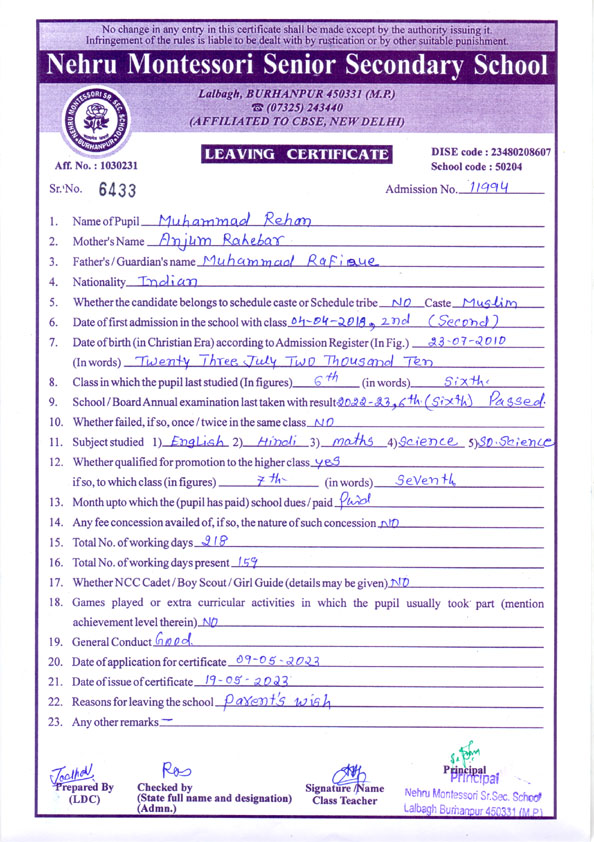 No change in any entry in this certificate shall be made except by the authority issuing it.
Infringement of the rules is liable to be dealt with by rustication or by other suitable punishment.
Nehru Montessori Senior Secondary School
Lalbagh, BURHANPUR 450331 (M.P.)
☎ (07325) 243440
(AFFILIATED TO CBSE, NEW DELHI)
NEHRU MONTESSORI SR. SEC. SCHOOL
BURHANPUR
LEAVING CERTIFICATE
DISE code : 23480208607
Aff. No. : 1030231 School code : 50204
Sr. No. 6433 Admission No. 11994
1. Name of Pupil Muhammad Rehan
2. Mother's Name Anjum Rahebar
3. Father's / Guardian's name Muhammad Rafique
4. Nationality Indian
5. Whether the candidate belongs to schedule caste or Schedule tribe NO Caste Muslim
6. Date of first admission in the school with class 04-04-2018, 2nd (Second)
7. Date of birth (in Christian Era) according to Admission Register (In Fig.) 23-07-2010
(In words) Twenty Three July Two Thousand Ten
8. Class in which the pupil last studied (In figures) 6th (in words) Sixth.
9. School / Board Annual examination last taken with result 2022-23, 6th (Sixth) Passed.
10. Whether failed, if so, once / twice in the same class NO
11. Subject studied 1) English 2) Hindi 3) maths 4) Science 5) SO.Science
12. Whether qualified for promotion to the higher class yes
if so, to which class (in figures) 7th (in words) Seventh
13. Month upto which the (pupil has paid) school dues / paid Paid
14. Any fee concession availed of, if so, the nature of such concession NO
15. Total No. of working days 218
16. Total No. of working days present 159
17. Whether NCC Cadet / Boy Scout / Girl Guide (details may be given) NO
18. Games played or extra curricular activities in which the pupil usually took part (mention
achievement level therein) NO
19. General Conduct Good
20. Date of application for certificate 09-05-2023
21. Date of issue of certificate 19-05-2023
22. Reasons for leaving the school Parent's wish
23. Any other remarks —
Prepared By
(LDC)
Checked by
(State full name and designation)
(Admn.)
Signature /Name
Class Teacher
Principal
Principal
Nehru Montessori Sr.Sec. School
Lalbagh Burhanpur 450331 (M.P.)